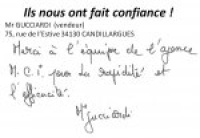 Ils nous ont fait confiance !
Mr GUCCIARDI (vendeur)
75, rue de l'Estive 34130 CANDILLARGUES
Merci à l'équipe de l'agence
M.C.I. pour la rapidité et
l'efficacité.
Mr Gucciardi